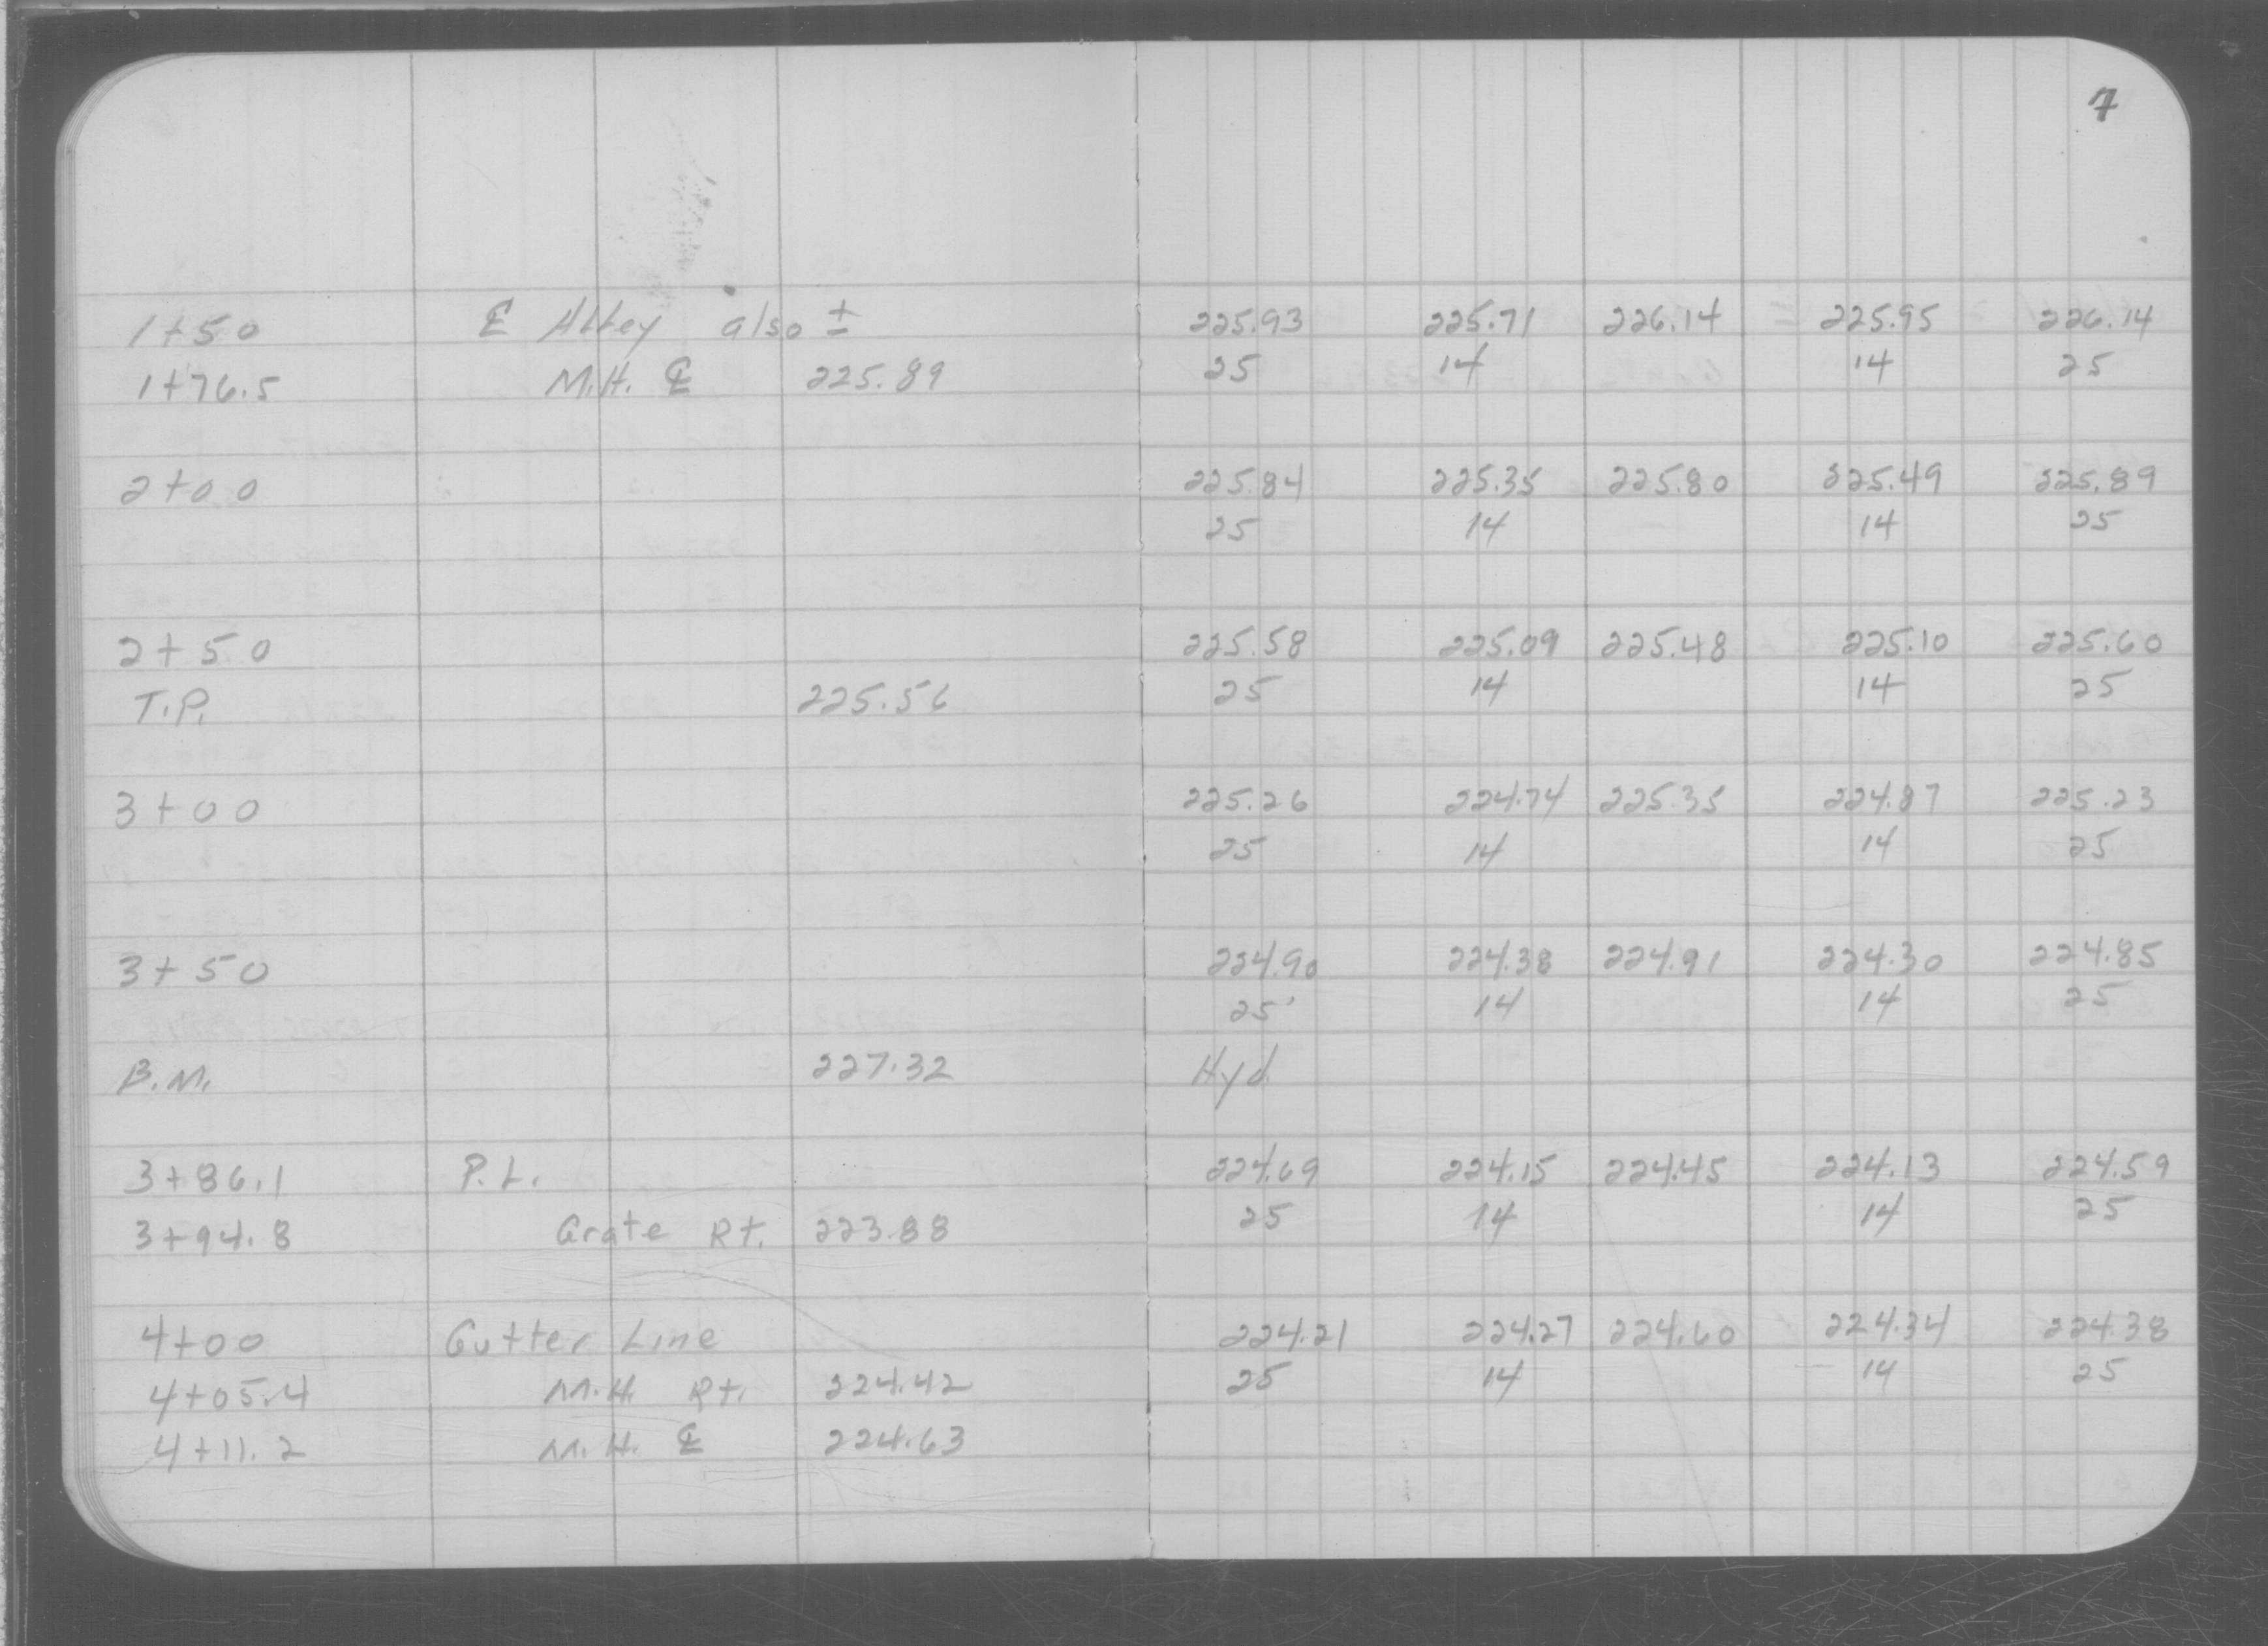 7
1+50 ℄ Alley also ± 225.93 225.71 226.14 225.95 226.14
1+76.5 M.H. ℄ 225.89 25 14 14 25
2+00 225.84 225.35 225.80 225.49 225.89
25 14 14 25
2+50 225.58 225.09 225.48 225.10 225.60
T.P. 225.56 25 14 14 25
3+00 225.26 224.74 225.35 224.87 225.23
25 14 14 25
3+50 224.90 224.38 224.91 224.30 224.85
25' 14 14 25
B.M. 227.32 Hyd
3+86.1 P.L. 224.69 224.15 224.45 224.13 224.59
3+94.8 Grate Rt. 223.88 25 14 14 25
4+00 Gutter Line 224.21 224.27 224.60 224.34 224.38
4+05.4 M.H. Rt. 224.42 25 14 14 25
4+11.2 M.H. ℄ 224.63